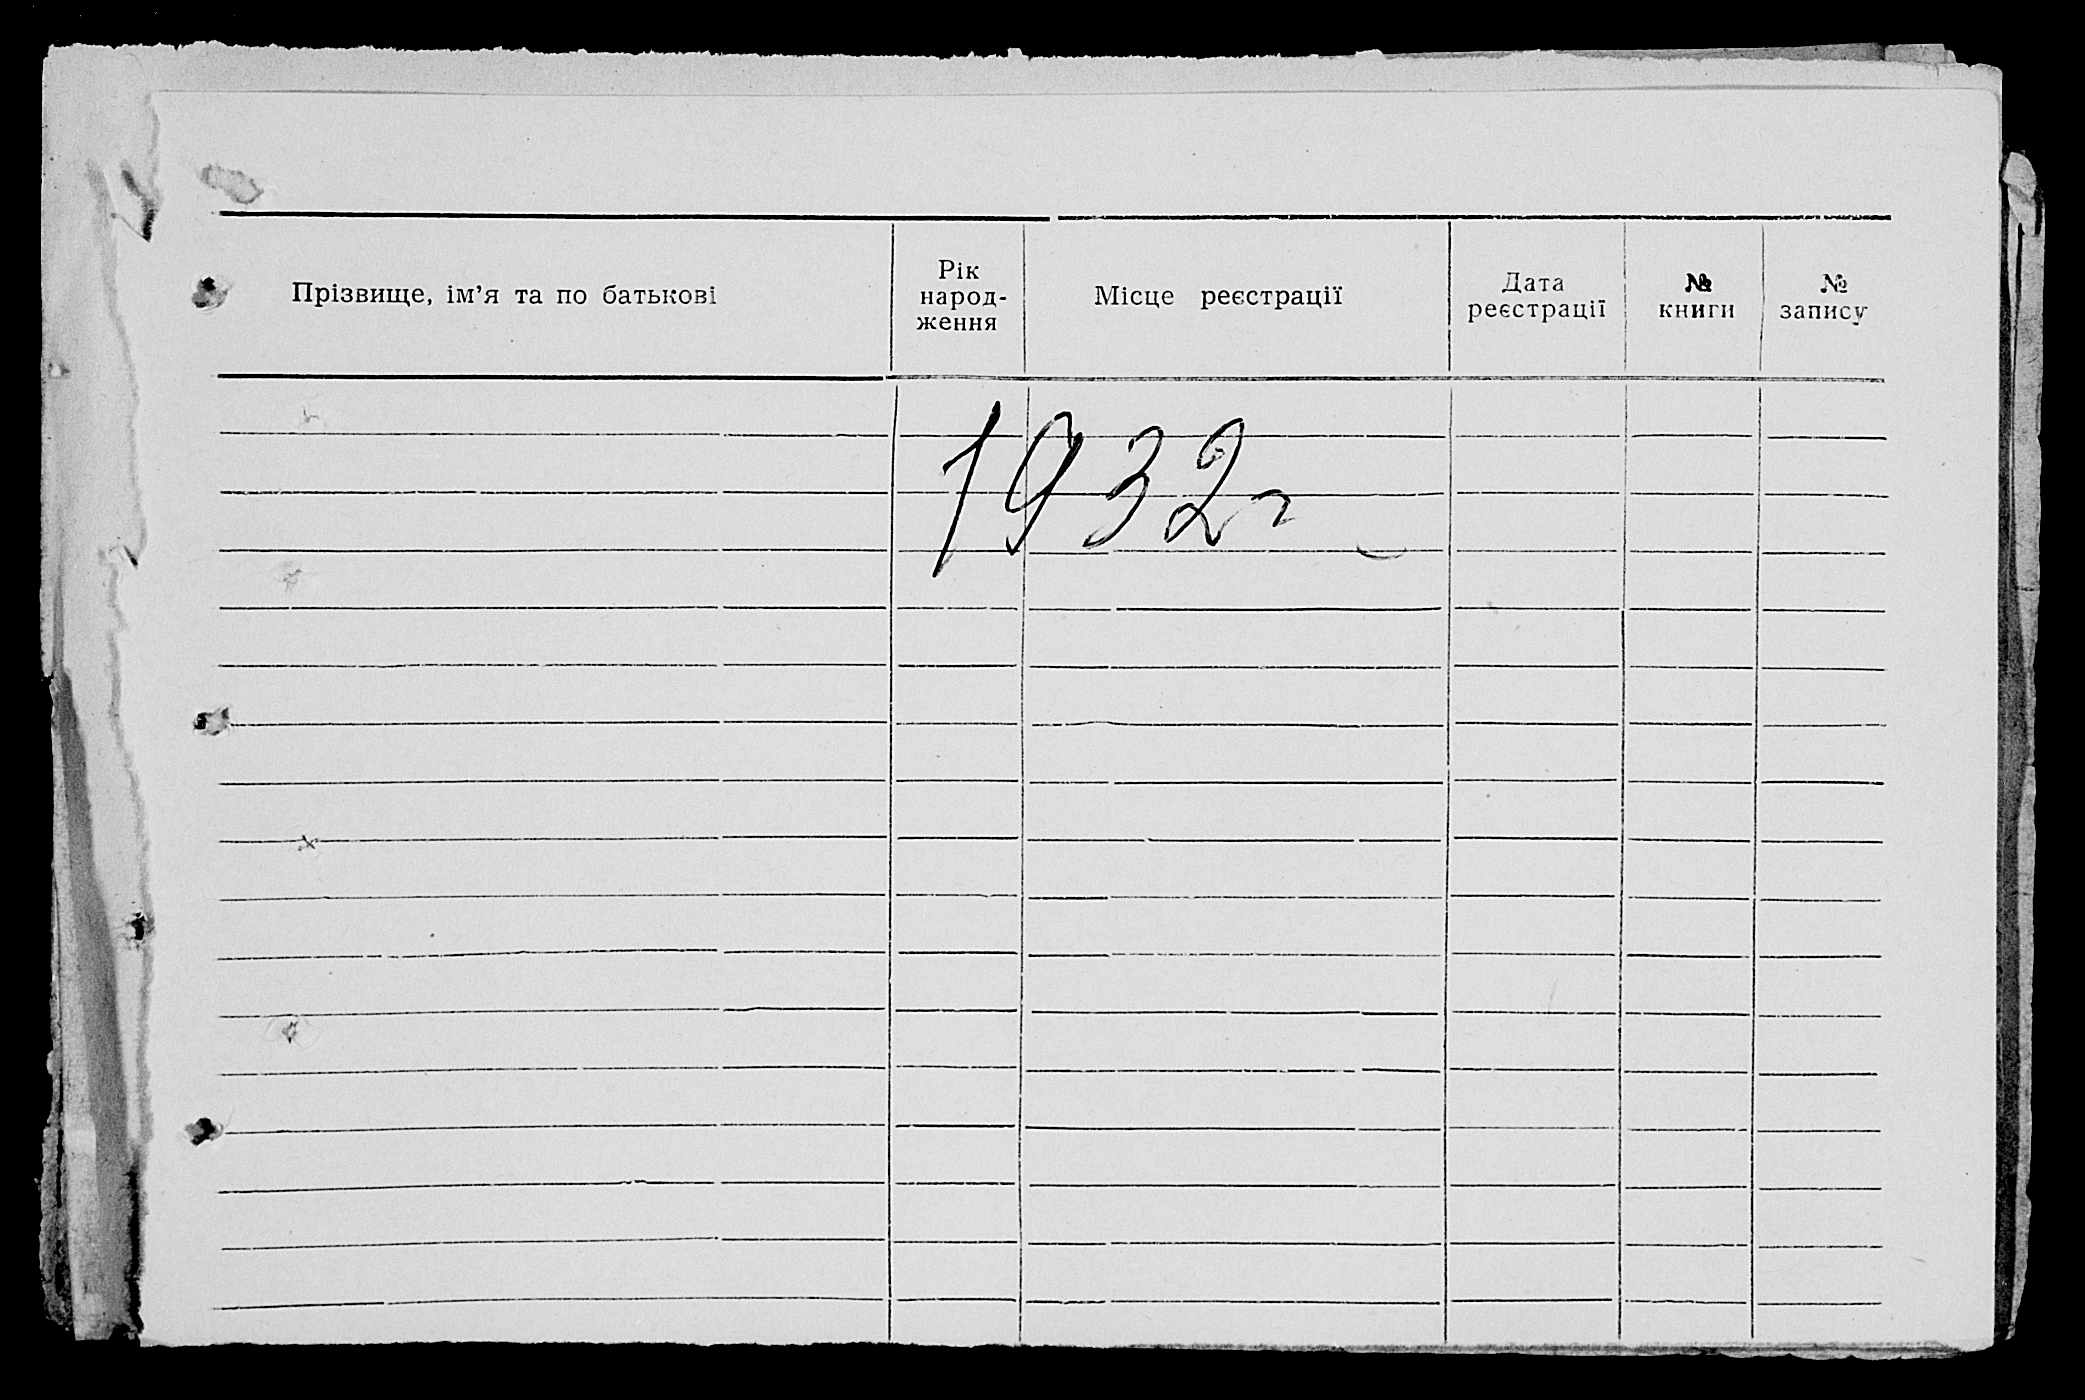 Прізвище, ім’я та по батькові
Рік
народ-
ження
Місце реєстрації
Дата
реєстрації
№
книги
№
запису
1932г